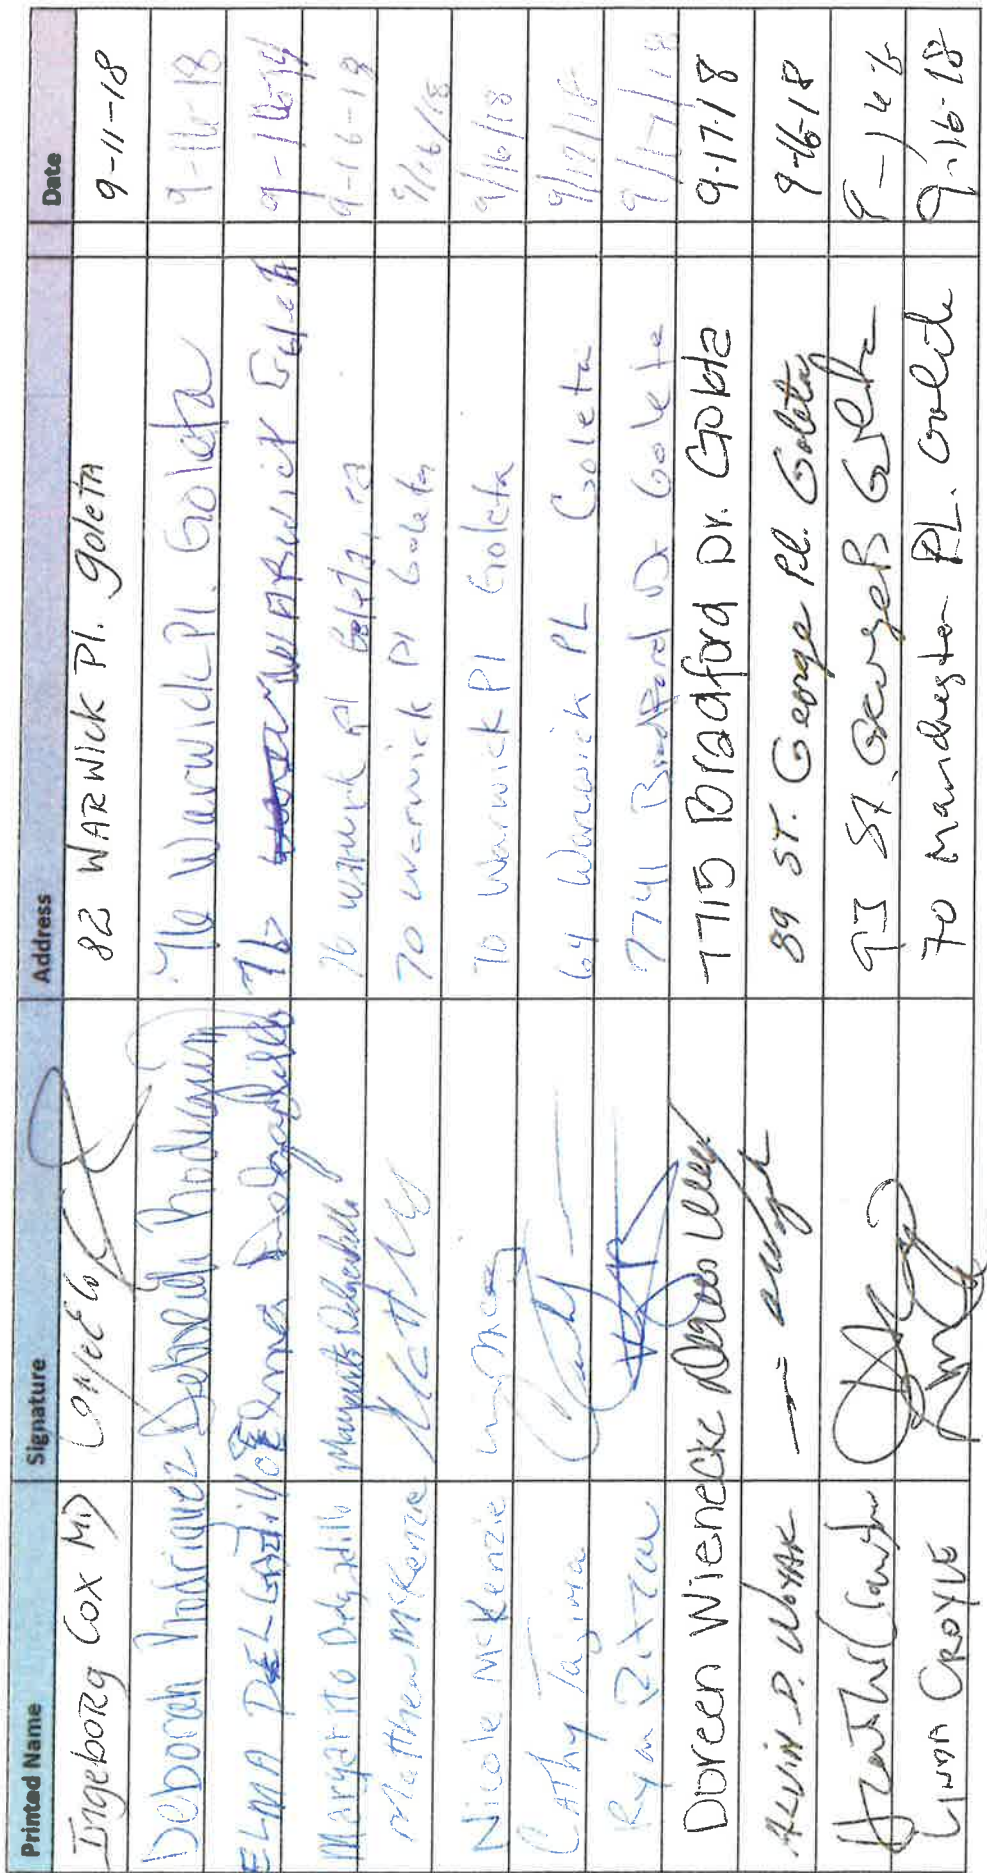 Printed Name Signature Address Date
Ingeborg Cox MD 82 WARWICK Pl. goleta 9-11-18
Deborah Rodriguez Deborah Rodriguez 76 Warwick Pl. Goleta 9-16-18
ELMA DELGADILLO Elma Delgadillo 76 WARWICK Goleta
Margarito Delgadillo Margarito Delgadillo 76 warwick pl Goleta, ca 9-16-18
Matthew McKenzie 70 warwick Pl Goleta 9/16/18
Nicole McKenzie 70 Warwick Pl Goleta 9/16/18
CATHy Tajima 64 Warwick PL Goleta 9/17/18
Ryan 7741 Bradford Dr Goleta 9/17/18
Doreen Wienecke 7715 Bradford Dr. Goleta 9-17-18
ALVIN D. WOYAK 89 ST. George Pl. Goleta 9-16-18
Heather 93 St. George Pl Goleta
LINDA CROYLE 70 Manchester PL. Goleta 9-16-18